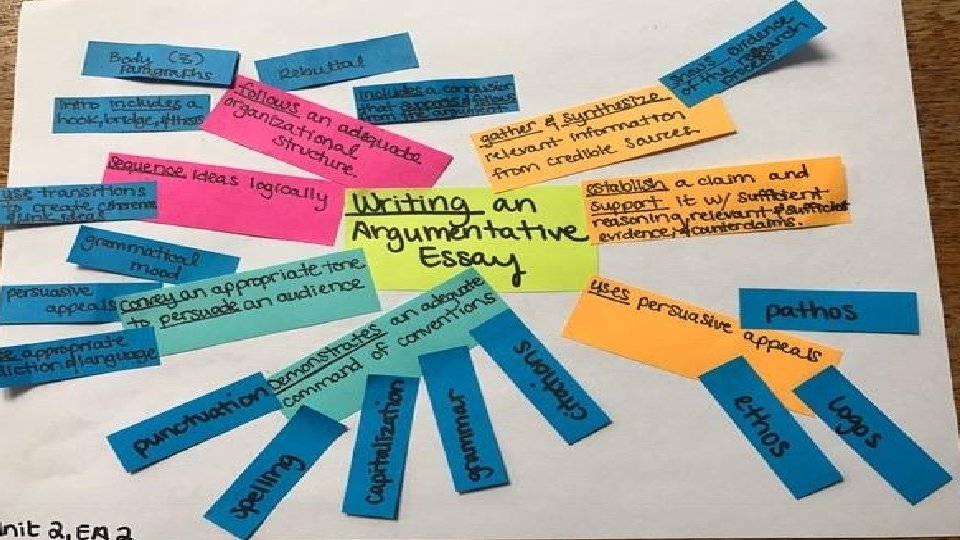 Body (3)
Paragraphs
Rebuttal
Intro includes a
hook, bridge, &
includes a conclusion
that supports & follows
from the
follows an adequate
organizational
structure.
sequence ideas logically
use transitions
to create
& link ideas
shows evidence
of the research
process
gather & synthesize
relevant information
from credible sources
establish a claim and
support it w/ sufficient
reasoning, relevant & sufficient
evidence, & counterclaims.
Writing an
Argumentative
Essay
grammatical
mood
persuasive
appeals
appropriate
diction & language
convey an appropriate tone
to persuade an audience
Demonstrates an adequate
command of conventions
punctuation
spelling
capitalization
grammar
citations
uses persuasive appeals
pathos
ethos
logos
Unit 2, EA 2